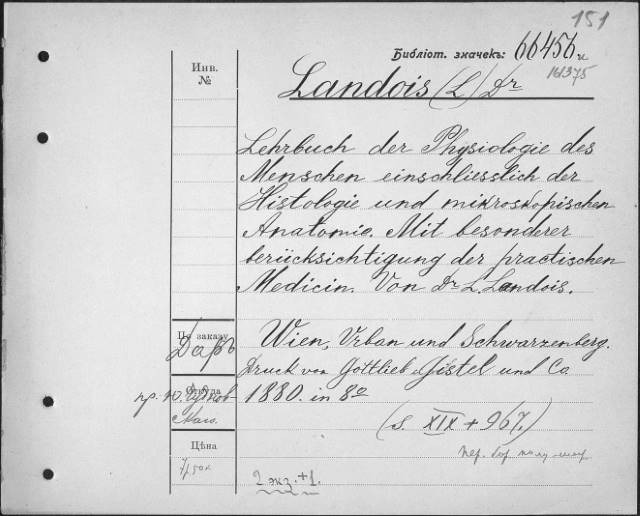 151
Библіот. значекъ: 66456 и
161375
Инв.
№
Landois (L) Dr
Lehrbuch der Physiologie des
Menschen einschliesslich der
Histologie und mikroskopischen
Anatomie. Mit besonderer
berücksichtigung der practischen
Medicin. Von Dr L. Landois.
По заказу
Даръ
Wien, Urban und Schwarzenberg.
Druck von Gottlieb Gistel und Co
Откуда
пр. Ю.
1880. in 8o
(s. XIX + 967.)
Цѣна
пер. бор.
2 экз. + 1.